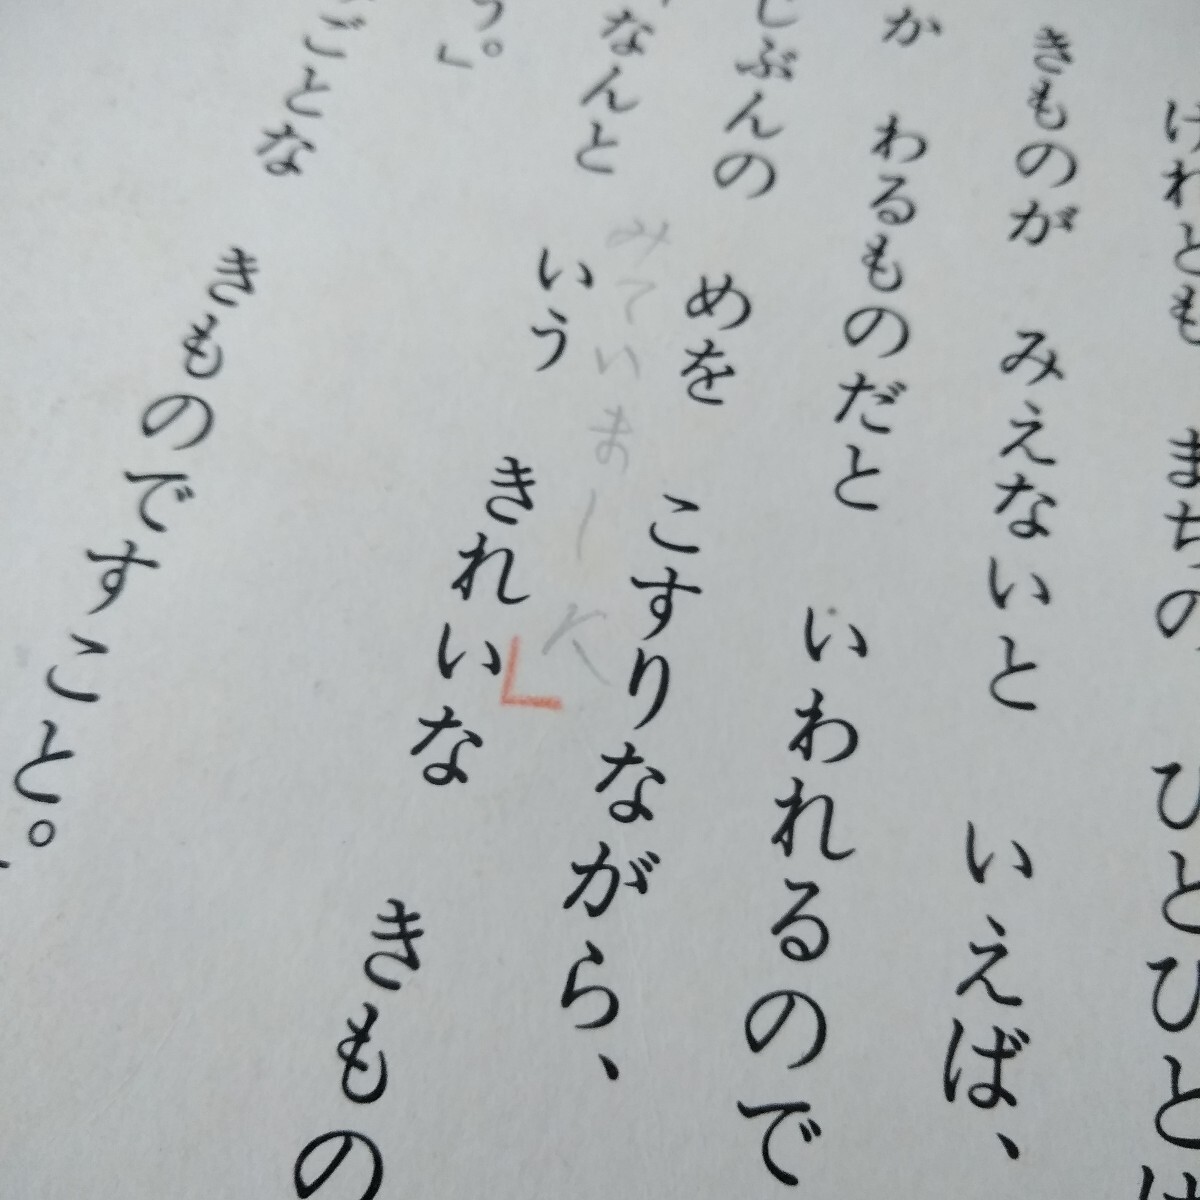 けれども まちの ひとびとは
きものが みえないと いえば、
が わるものだと いわれるので
じぶんの めを こすりながら、
みていました
なんと いう きれいな きもの
う。」
ごとな きものですこと。